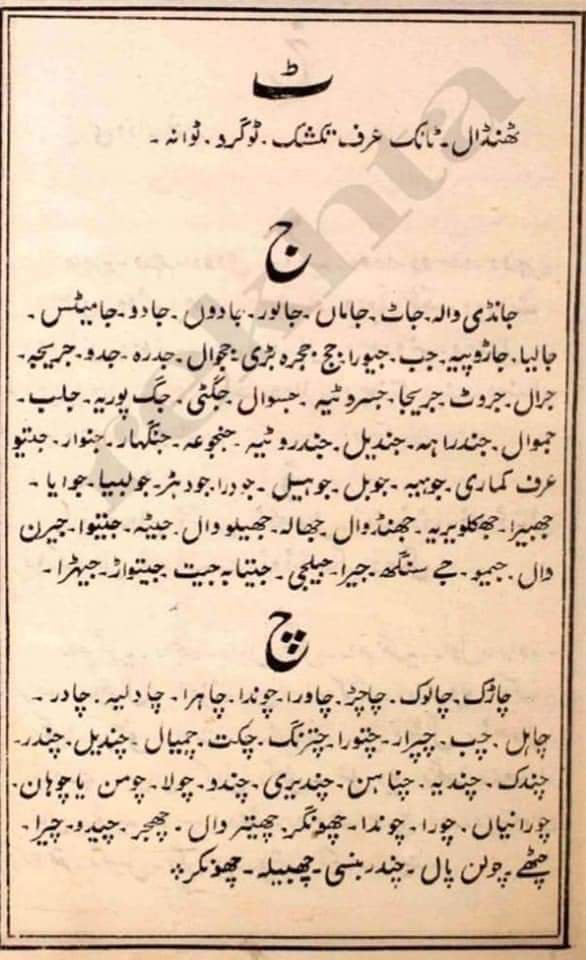 ٹ
ٹھنڈال ۔ ٹانک عرف تکشک ۔ ٹوگرو ۔ ٹوانہ ۔
ج
جانڈی والہ ۔ جاٹ ۔ جاماں ۔ جالور ۔ جادول ۔ جادو ۔ جامیٹس ۔
جالپا ۔ جاڑوپیہ ۔ جب ۔ جبورا ۔ جج ۔ ججرہ بڑی ۔ ججوال ۔ جدرہ ۔ جدو ۔ جریجہ ۔
جرال ۔ جروٹ ۔ جریجا ۔ جسروٹیہ ۔ جسوال ۔ جگٹی ۔ جگ پوریہ ۔ جلب ۔
جموال ۔ جندراہہ ۔ جندیل ۔ جندروٹیہ ۔ جنجوعہ ۔ جنگہار ۔ جنوار ۔ جنتیو
عرف کماری ۔ جوہیہ ۔ جوبل ۔ جوہیل ۔ جودرا ۔ جودہڑ ۔ جولبیا ۔ جوایا ۔
جھبیرا ۔ جھکلویریہ ۔ جھنڈوال ۔ ججالہ ۔ جھیلووال ۔ جیٹہ ۔ جیتوا ۔ جیرن
وال ۔ جیمو ۔ جے سنگھ ۔ جیرا ۔ جیلجی ۔ جیتنابہ جیت ۔ جیتواڑ ۔ جیہڑا ۔
چ
چاڑک ۔ چالوک ۔ چاچڑ ۔ چاورا ۔ چوندا ۔ چاہرا ۔ چادلیہ ۔ چادر ۔
چاہل ۔ چب ۔ چپرار ۔ چتورا ۔ چترنگ ۔ چکت ۔ چمیال ۔ چندیل ۔ چندر ۔
چندک ۔ چندیہ ۔ چناہن ۔ چندیری ۔ چندو ۔ چولا ۔ چومن یا چوہان ۔
چورانیاں ۔ چورا ۔ چوندا ۔ چھونگر ۔ چھینروال ۔ چھجر ۔ چیدو ۔ چیرا ۔
چٹھے ۔ چولن پال ۔ چندر بنسی ۔ چھبیلہ ۔ چھونکر ۔
rekhta